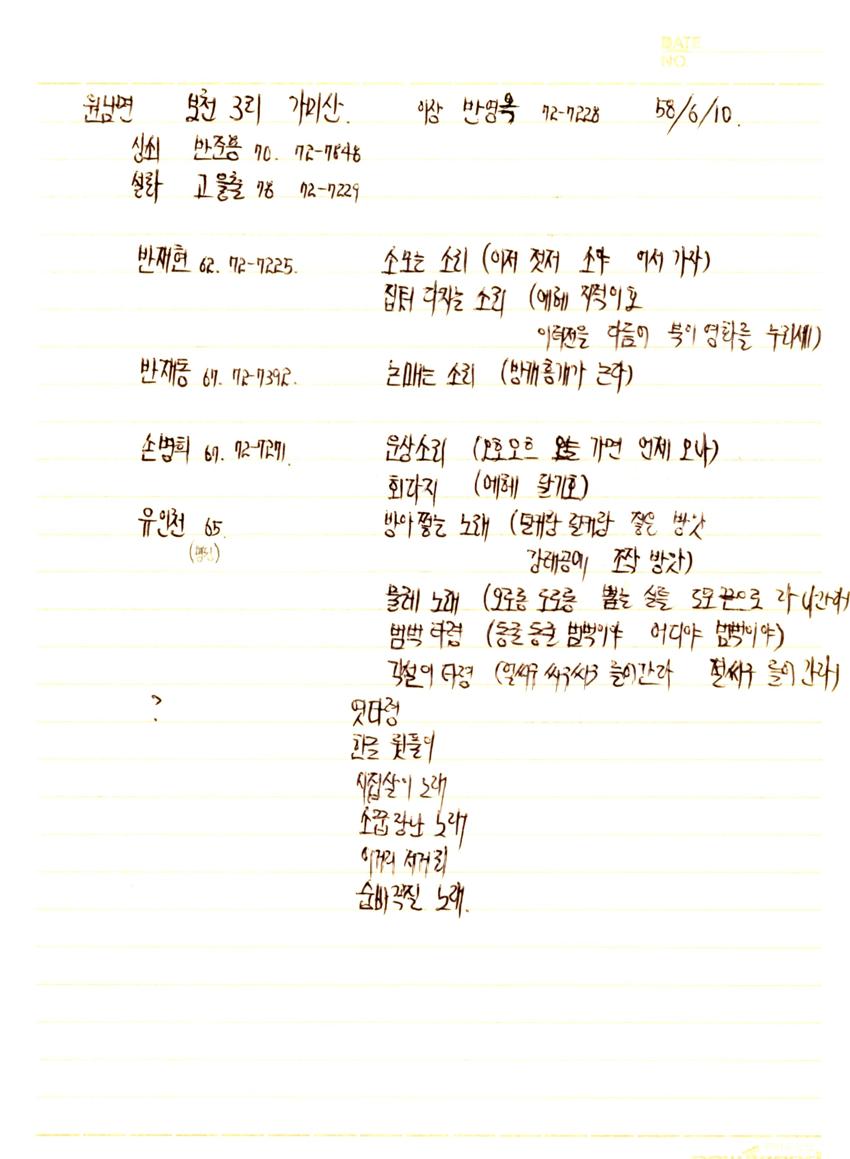 DATE
NO.
원남면 보천 3리 가미산. 이장 반영옥 72-7228 58/6/10.
상쇠 반준용 70. 72-7848
설라 고울출 78 72-7229
반재현 62. 72-7225. 소모는 소리 (이저 젓저 소야 어서 가자)
집터 다지는 소리 (에헤 지적이호
이력전을 다듬어 복이영화를 누리세)
반재동 67. 72-7392. 논매는 소리 (방개흥개가 논다)
손병희 67. 72-7271 운상소리 (오호오흐 가면 언제 오나)
회다지 (에헤 달기호)
유인천 65. 방아찧는 노래 (덜커랑 덜커랑 찧은 방앗
강래공이 쪼작 방앗)
물레 노래 (오로롱 도로롱 뽑는 실은 끝으로 나간다)
범벅 타령 (둥글둥글 범벅이야 어디야 범벅이야)
각설이 타령 (얼씨구 씨구씨구 들어간다 절씨구 들어간다)
? 엿타령
한글 뒷풀이
시집살이 노래
소꿉장난 노래
이거리 저거리
숨바꼭질 노래.